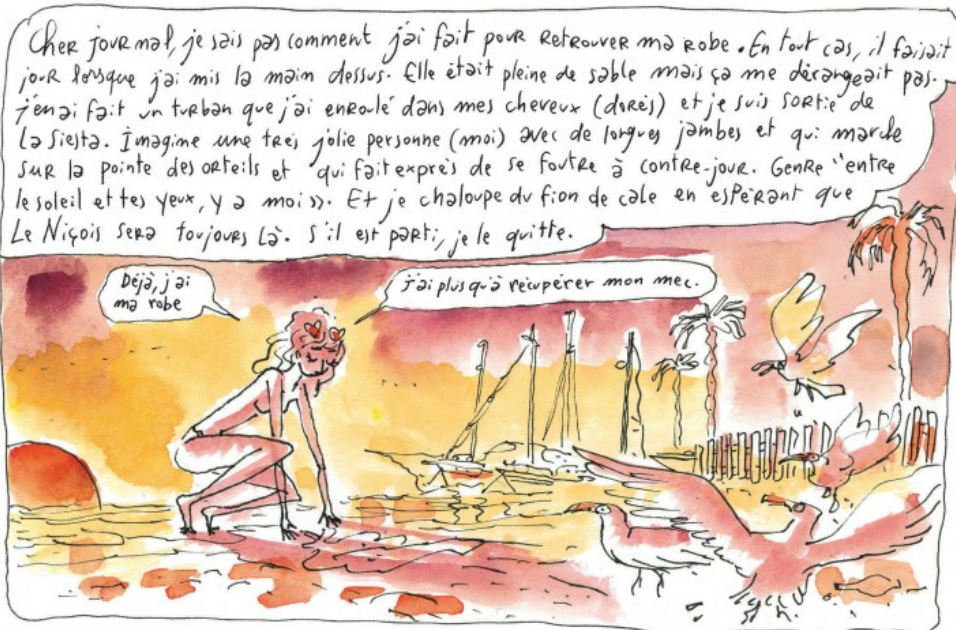 Cher journal, je sais pas comment j'ai fait pour retrouver ma robe. En tout cas, il faisait
jour lorsque j'ai mis la main dessus. Elle était pleine de sable mais ça me dérangeait pas.
j'en ai fait un turban que j'ai enroulé dans mes cheveux (dorés) et je suis sortie de
La Siesta. Imagine une très jolie personne (moi) avec de longues jambes et qui marche
sur la pointe des orteils et qui fait exprès de se foutre à contre-jour. Genre "entre
le soleil et tes yeux, y a moi ». Et je chaloupe du fion de cale en espérant que
Le Niçois sera toujours là. S'il est parti, je le quitte.
Déjà, j'ai
ma robe
J'ai plus qu'à récupérer mon mec.